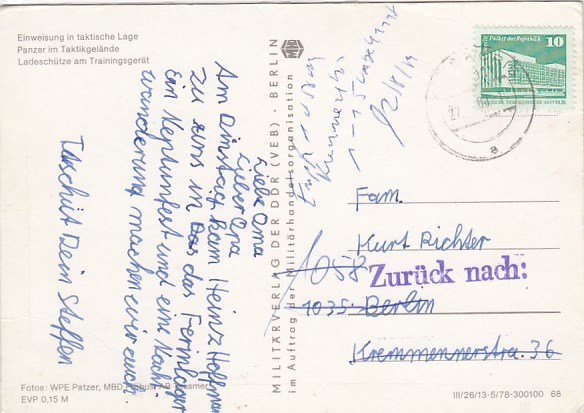 Einweisung in taktische Lage
Panzer im Taktikgelände
Ladeschütze am Trainingsgerät
Liebe Oma
Lieber Opa
Am Dinstag kam Heinz Hoffman
zu uns in Das das Ferinlager
Ein Neptunfest und eine Nacht-
wanderung machen wir auch.
Tüschüß Dein Steffen
MILITÄRVERLAG DER DDR (VEB) · BERLIN
im Auftrag der Militärhandelsorganisation
Palast der Republik
10
Fam.
Kurt Richter
1058
Zurück nach:
1035 Berlin
Kremmennerstrang. 36
Fotos: WPE Patzer, MBD
EVP 0,15 M
III/26/13-5/78-300100 68